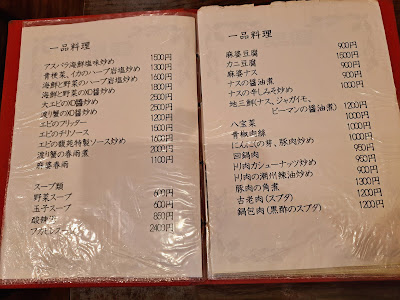 一品料理
アスパラ海鮮塩味炒め 1500円
青梗菜、イカのハーブ岩塩炒め 1300円
海鮮と野菜のハーブ岩塩炒め 1600円
海鮮と野菜のXO醤炒め 1800円
大エビのXO醤炒め 2500円
渡り蟹のXO醤炒め 2500円
エビのフリッター
エビのチリソース
エビの 苑特製ソース炒め
渡り蟹の春雨煮 2000円
麻婆春雨 1100円
スープ類
野菜スープ 600円
玉子スープ 660円
酸辣湯 850円
フカヒレスープ 2400円
一品料理
麻婆豆腐 900円
カニ豆腐 1500円
麻婆ナス 950円
ナスの醤油煮 950円
ナスの辛しみそ炒め 950円
地三鮮(ナス、ジャガイモ、
ピーマンの醤油煮) 1200円
八宝菜 1200円
青椒肉絲
にんにくの芽、豚肉炒め 950円
回鍋肉 950円
トリ肉カシューナッツ炒め 950円
トリ肉の潮州辣油炒め
豚肉の角煮 1300円
古老肉(スブタ) 1200円
鍋包肉(黒酢のスブタ) 1200円